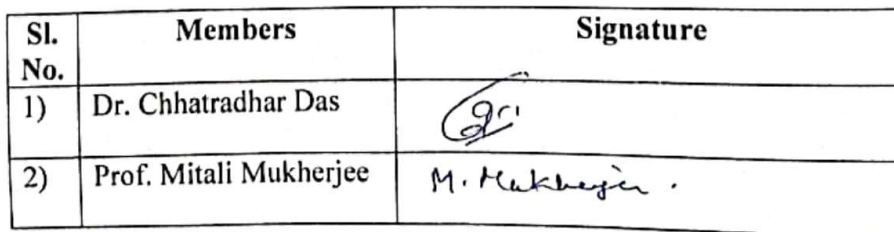 Sl. No. Members Signature
1) Dr. Chhatradhar Das
2) Prof. Mitali Mukherjee M. Mukherjee .